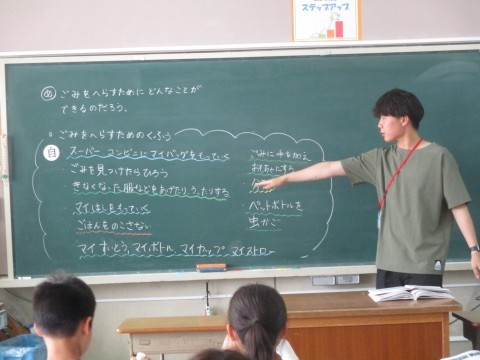 ステップアップ
め ごみをへらすためにどんなことが
できるのだろう。
ごみをへらすためのくふう
自 スーパー、コンビニにマイバッグをもっていく
ごみを見つけたらひろう
きなくなった服などをあげたり、うったりする
マイはしをもっていく
ごはんをのこさない
マイすいとう、マイボトル、マイカップ、マイストロー
ごみに手を加え
おもちゃにする
ペットボトルを
虫かご